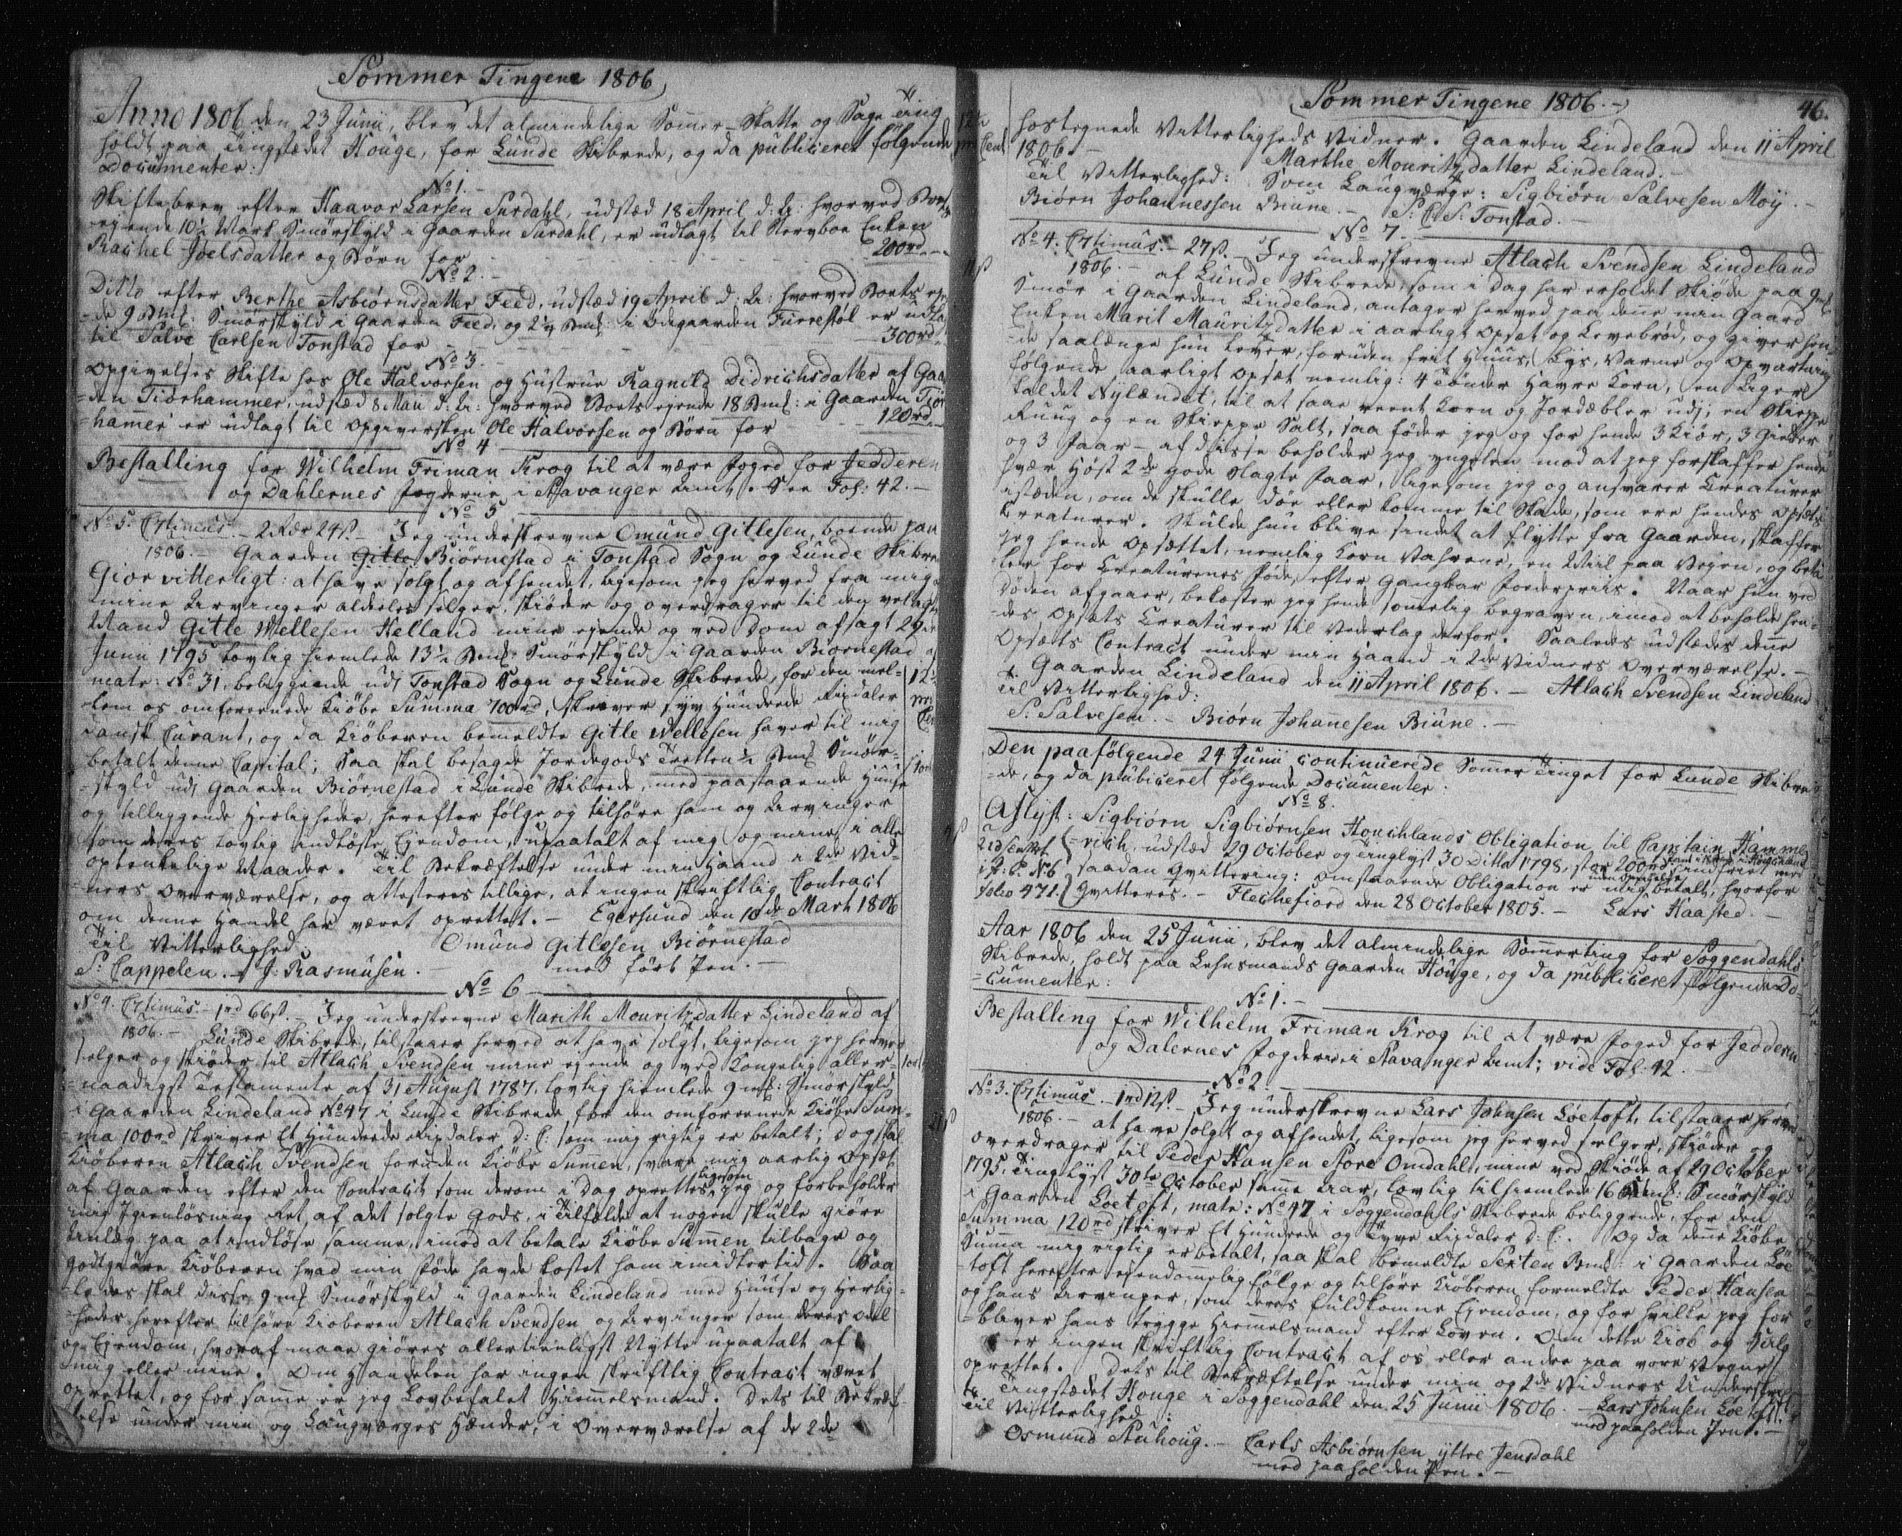 Sommer Tingene 1806
Anno 1806 den 23 Junii, blev det almindelige Sommer-Skatte og Sage Ting
holdt paa Tingstædet Houge, for Lunde Skibrede, og da publiceret følgende
Documenter:
No 1.
Skiftebrev efter Haavor Larsen Surdahl, udstæd 18 April d: A: hvorved Boets
ejende 10½ Mark Smørskyld i Gaarden Surdahl, er udlagt til Stervboe Enken
Rachel Joelsdatter og Børn for 200rd.
No 2.
Ditto efter Berthe Asbiørnsdatter Feed, udstæd 19 April d: A: hvorved Boets ejen
-de 9 Bml: Smørskyld i Gaarden Feed, og 2½ Bml: i Ødegaarden Furrestøl er udlagt
til Salve Carlsen Tonstad for 300rd.
No 3.
Opgivelses Skifte hos Ole Halvorsen og Hustrue Ragnild Didrichsdatter af Gaar
den Tiørhammer, udstæd 8 Mai d: A: hvorved Boets ejende 18 Bml: i Gaarden Tiør
-hamer er udlagt til Opgiversken Ole Halvorsen og Børn for 120rd.
No 4
Bestalling for Wilhelm Friman Krog til at være Foged for Jedderen
og Dahlernes Fogderie, i Stavanger Amt. See Fol: 42.
No 5
No 5. Cs timus. 2 Rdr 24ß. Jeg underskrevne Omund Gitlesen, boende paa
1806. Gaarden Gitle Biørnestad i Tonstad Sogn og Lunde Skibre
Giør vitterligt: at have solgt og afhendet, ligesom jeg herved fra mig og
mine Arvinger aldeles selger, skiøder og overdrager til den velagte
Mand Gitle Wellesen Helland mine ejende og ved Dom afsagt 29de
Junii 1795 lovlig hiemlede 13½ Bml: Smørskyld i Gaarden Biørnestad
matr: No 31, beliggende udi Tonstad Sogn og Lunde Skibrede, for den mel-
lem os omforeenede Kiøbe Summa 700rd, skriver syv Hundrede Rixdaler
dansk Curant, og da Kiøberen bemeldte Gitle Wellesen haver til mig
betalt denne Capital; Saa skal besagde Jordegods Tretten ½ Bml Smør-
-skyld udi Gaarden Biørnestad i Lunde Skibrede, med paastaaende Huuse
og tilliggende Herligheder herefter følge og tilhøre ham og Arvinger
som deres lovlig indløste Ejendom, upaatalt af mig og mine i alle
optenkelige Maader. Til Bekræftelse under min Haand i 2de Vid-
ners Overværelse, og attesteres tillige, at ingen skriftlig Contract
om denne Handel har været oprettet. Egersund den 10de Mart 1806
Til Vitterlighed Omund Gitlesen Biørnestad
S: Cappelen. J: Rasmusen. med ført Pen.
No 6
No 4. Cs timus. 1rd 66ß. Jeg underskrevne Marith Mouritzdatter Lindeland af
1806. Lunde Skibrede, tilstaaer herved at have solgt, ligesom jeg herved
selger og skiøder til Atlach Svendsen mine ejende og ved Kongelig aller-
-naadigst Testamente af 31 August 1787, lovlig hiemlede 9 ml: Smørskyld
i Gaarden Lindeland No 47 i Lunde Skibrede for den omforeenede Kiøbe Sum-
ma 100rd skriver Et Hundrede Rixdaler d: C: som mig rigtig er betalt; dog skal
Kiøberen Atlach Svendsen foruden Kiøbe Summen, svare mig aarlig Opsæt
af Gaarden efter den Contract som derom i Dag oprettes, ligesom jeg og forbeholder
mig Igienløsning Ret af det solgte Gods, i Tilfælde at nogen skulle giøre
Anlæg paa at indløse samme, imod at betale Kiøbe Summen tilbage og
godtgiøre Kiøberen hvad min Føde havde kostet ham imidlertid. Saa
ledes skal disse 9 ml Smørskyld i Gaarden Lindeland med Huuse og Herlig-
-heder herefter tilhøre Kiøberen Atlach Svendsen og Arvinger som deres Odel
og Ejendom, hvoraf maae giøres allertienligst Nytte upaatalt af
mig eller mine. Om Handelen har ingen skriftlig Contract været
oprettet, og for samme er jeg Lovbefalet Hiemmelsmand. Dets til Bekræf-
telse under min og Laugværges Hænder, i Overværelse af de 2de
Sommer Tingene 1806. 46.
hostegnede Vitterligheds Vidner. Gaarden Lindeland den 11 April
1806. Marthe Mouritzdatter Lindeland.
Til Vitterlighed: Som Laugværge: Sigbiørn Salvesen Moy.
Biørn Johannessen Biune. S: S: Tonstad.
No 7.
No 4. Cs timus. 27ß. Jeg underskrevne Atlach Svendsen Lindeland
1806. af Lunde Skibrede, som i Dag har erholdet Skiøde paa 9 ml
Smør i Gaarden Lindeland, antager herved paa denne min Gaard
Enken Marit Mauritzdatter i aarligt Opset og Levebrød, og giver hen-
-de saalænge hun lever, foruden frit Huus, Lys, Varme og Opvartning
følgende aarligt Opsæt nemlig: 4 Tønder Havre Korn, en Ager
kaldet Nylændet, til at saae reent Korn og Jordæbler udj, en Skieppe
Ruug og en Skieppe Salt, saa føder jeg og for hende 3 Kiør, 3 Gieder
og 3 Faar - af disse beholder jeg yngelen mod at jeg forskaffer hende
hvær Høst 2de gode Slagte Faar, ligesom jeg og ansvarer Creaturer
isteden, om de skulle døe eller komme til Skade, som ere hendes Opsæts
Creaturer. Skulde hun blive sindet at flytte fra Gaarden, skaffer
jeg hende Opsættet, nemlig Korn Vahrene, en Miil paa Vejen, og beta
ler for Creaturenes Føde, efter gangbar Foderpriis. Naar hun ved
Døden afgaaer, bekoster jeg hende sømelig begraven, imod at beholde hen-
-des Opsæts Creaturer til Vederlag derfor. Saaledes udstædes denne
Opsæts Contract under min Haand i 2de Vidners Overværelse.
Gaarden Lindeland den 11 April 1806. Atlach Svendsen Lindeland
Til Vitterlighed:
S: Salvesen. Biørn Johanesen Biune.
Den paafølgende 24 Junii continuerede Sommer Tinget for Lunde Skibre
-de, og da publiceret følgende Documenter.
No 8.
Aflyst: Sigbiørn Sigbiørnsen Houchlands Obligation til Captain Hamme
-rich, udstæd 29 October og tinglyst 30 Ditto 1798, stor 200rd
i P: P: No 6 saadan Qvittering: omstaaende Obligation er mig betalt, hvorfor
folio 471. Qvitteres. Flechefiord den 28 October 1805. Lars Haasted.
Aar 1806 den 25 Junii, blev det almindelige Sommerting for Soggendahls
Skibrede, holdt paa Lehnsmands Gaarden Houge, og da publiceret følgende Do-
cumenter:
No 1.
Bestalling for Wilhelm Friman Krog til at være Foged for Jedderen
og Dalernes Fogderie i Stavanger Amt; vide Fol. 42.
No 2.
No 3. Cs timus. 1rd 12ß. Jeg underskrevne Lars Johnsen Løetoft, tilstaaer herved
1806. at have solgt og afhendet, ligesom jeg herved sælger, skiøder og
overdrager til Peder Hansen Store Omdahl, mine ved Skiøde af 29 October
1795, tinglyst 30te October samme Aar, lovlig tilhiemlede 16 Bml: Smørskyld
i Gaarden Løetoft, matr: No 47 i Soggendahls Skibrede beliggende, for den
Summa 120rd skriver Et Hundrede og Tyve Rixdaler d: C:. Og da denne Kiøbe
Summa mig rigtig er betalt, saa skal bemeldte Sexten Bml: i Gaarden Løe
toft herefter ejendommelig følge og tilhøre Kiøberen formeldte Peder Hansen
og hans Arvinger, som deres fuldkomne Ejendom, og for hvilke jeg for
-bliver hans trygge Hiemelsmand efter Loven. Om dette Kiøb og Salg
er ingen skriftlig Contract af os eller andre paa vore Vegne
oprettet. Dets til Bekræftelse under min og 2de Vidners Underskrift
Tingstædet Houge i Soggendahl den 25 Junii 1806. Lars Johnsen Løetoft.
Til Vitterlighed: med paaholden Pen.
Osmund Stuhoug. Carls Asbiørnsen yttre Jensdahl
med paaholden Pen.